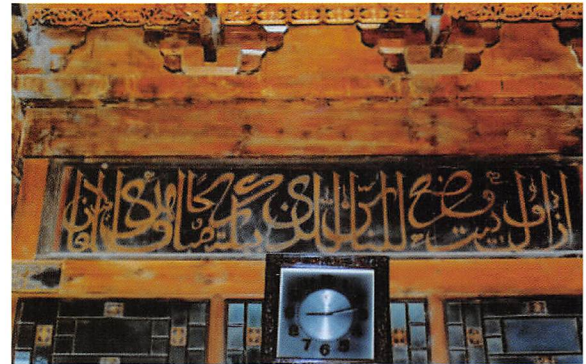 ان اول بيت وضع للناس للذي ببكة مباركا وهدى للعالمين
8 7 6 5 4